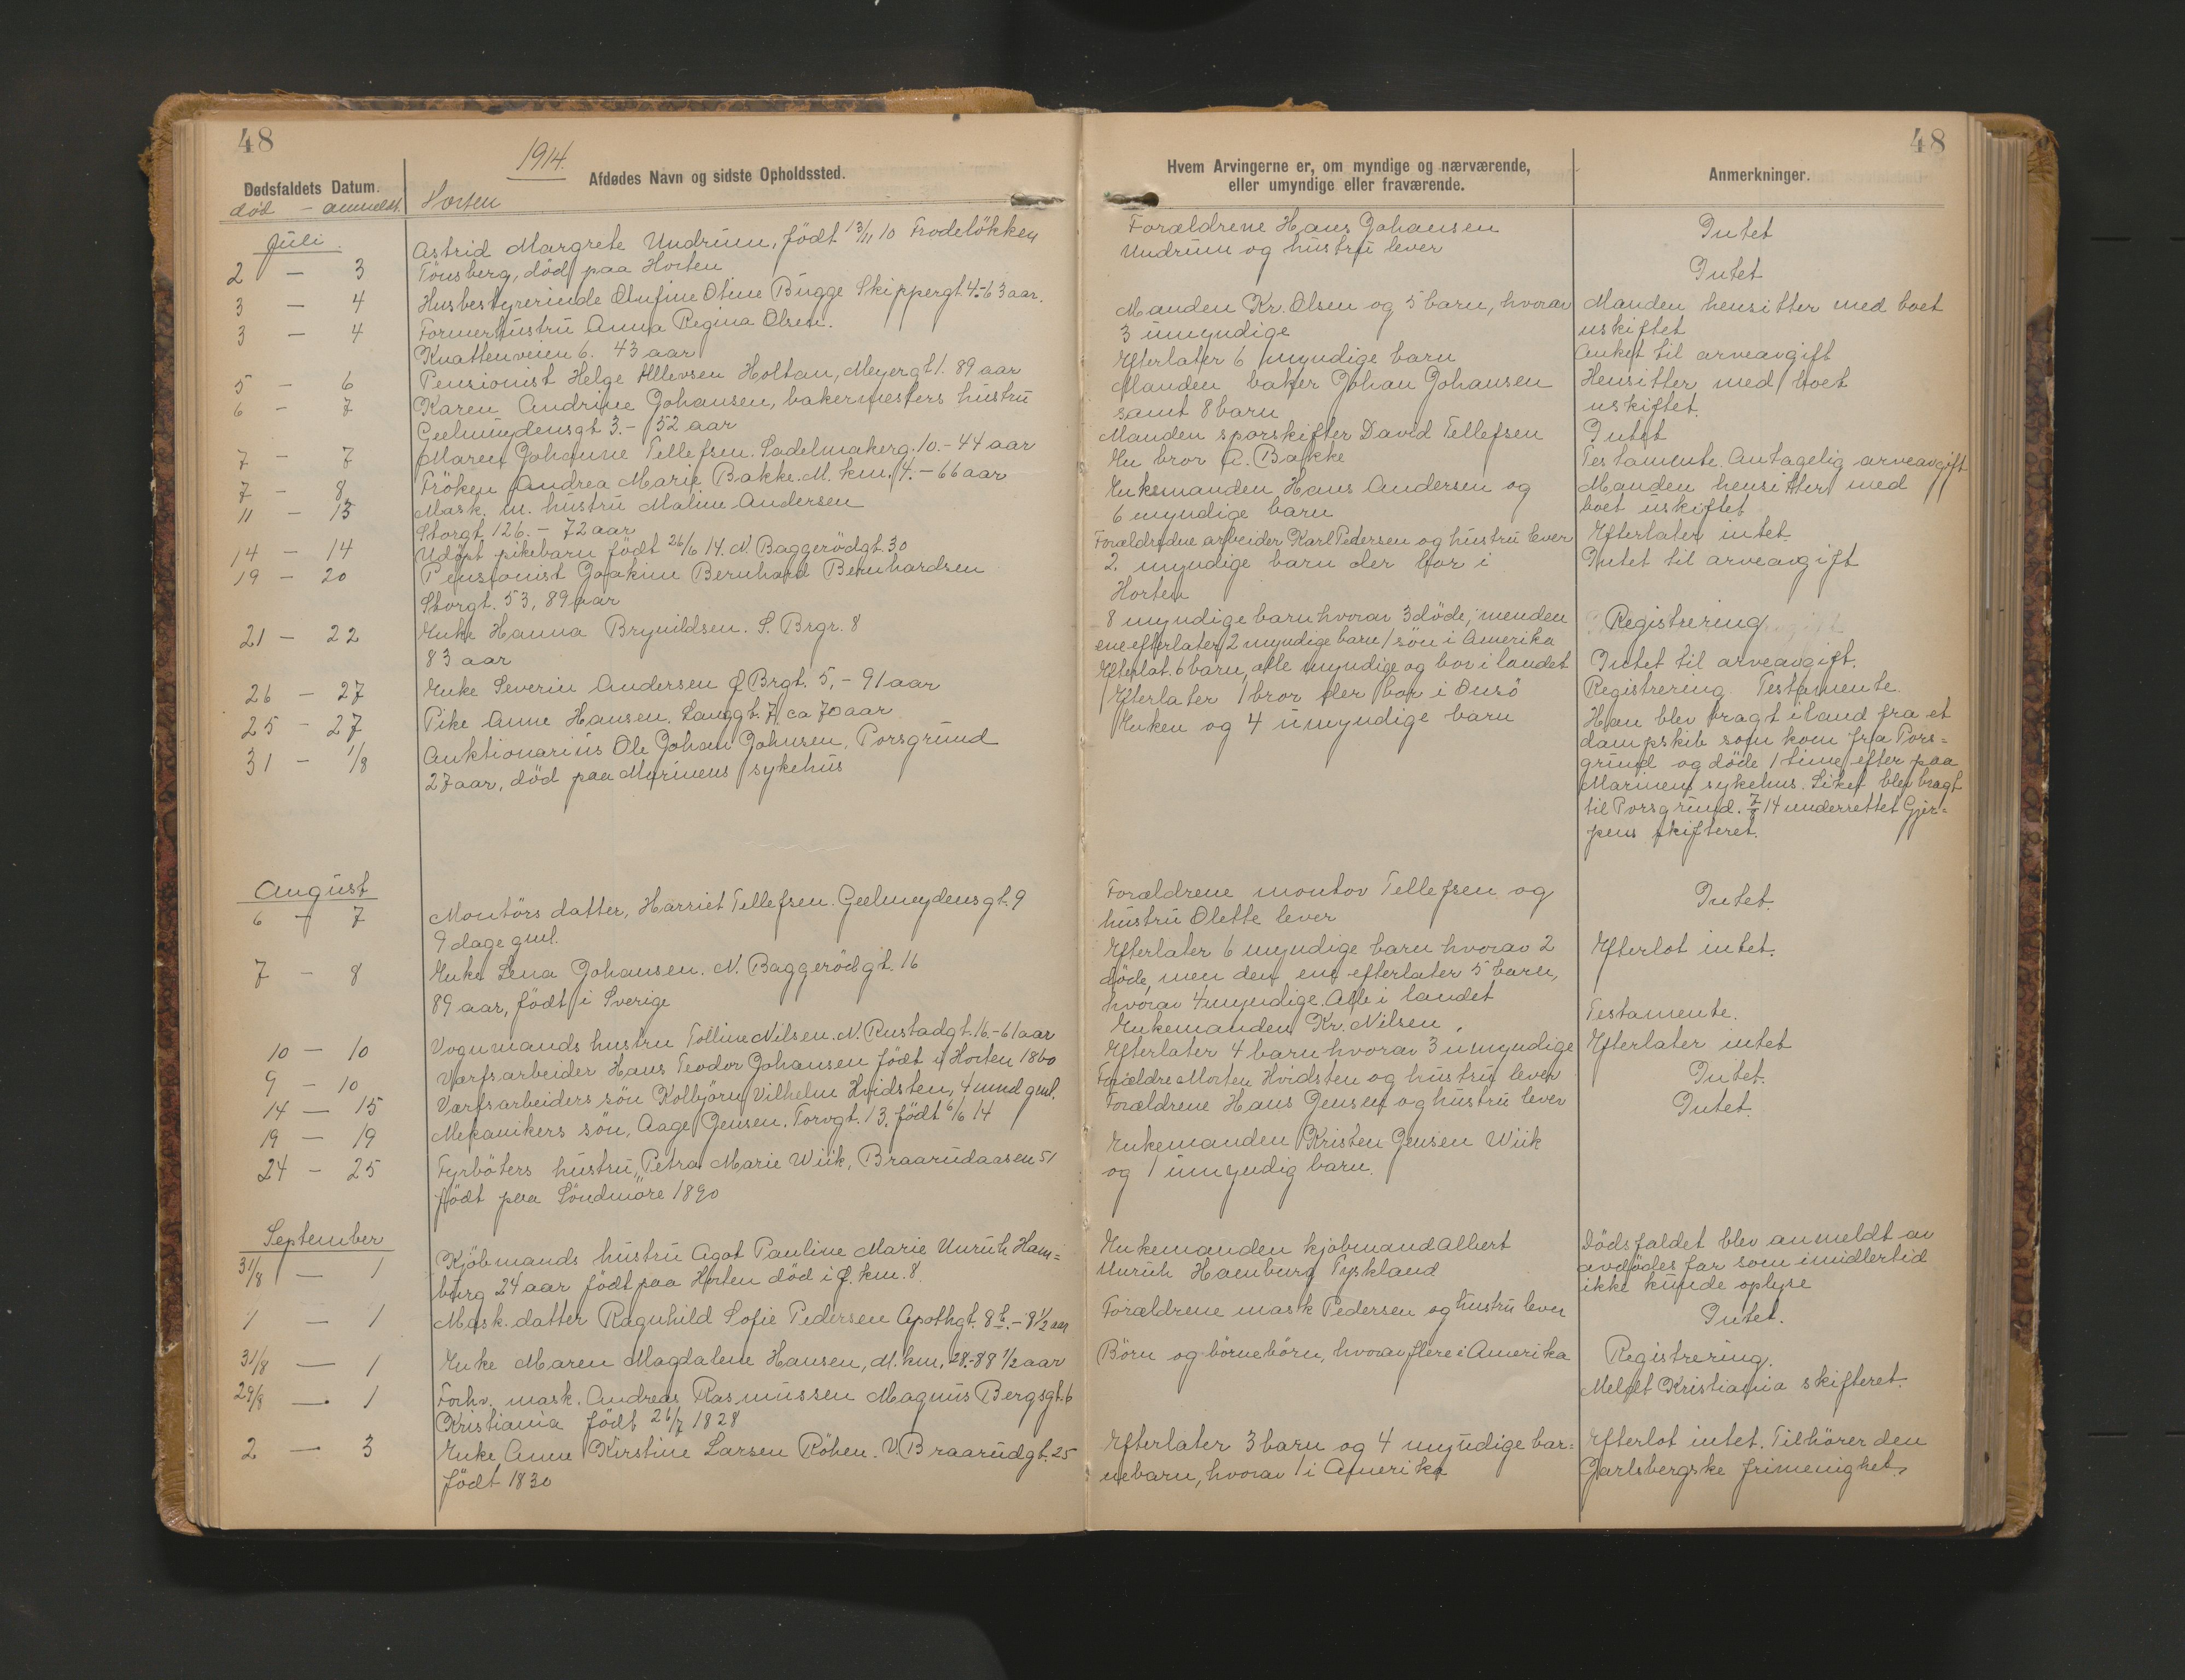 48
1914.
Dødsfaldets Datum.
Afdødes Navn og sidste Opholdssted.
død - anmeldt.
Horten
Juli
2 - 3
Astrid Margrete Undrum, født 13/11 10 Frodeløkken
Tønsberg, død paa Horten
3 - 4
Husbestyrerinde Olufine Otine Bugge Skippergt. 4.-63 aar.
3 - 4
Formerhustru Anna Regina Olsen.
Knattenveien 6. 43 aar
5 - 6
Pensionist Helge Ellevsen Holtan, Meyergt 1. 89 aar
6 - 7
Karen Andrine Johansen, bakermesters hustru
Geelmuydensgt 3.- 52 aar
7 - 7
Maren Johanne Tellefsen. Sadelmakerg. 10.- 44 aar
7 - 8
Frøken Andrea Marie Bakke. M. km. 4.- 66 aar
11 - 13
Mask. m. hustru Maline Andersen
Storgt 126.- 72 aar
14 - 14
Udøpt pikebarn født 26/6 14. N. Baggerødgt. 30
19 - 20
Pensionist Joakim Bernhard Bernhardsen
Storgt. 53, 89 aar
21 - 22
Enke Hanna Brynildsen. S. Brgr. 8
83 aar
26 - 27
Enke Severin Andersen Ø Brgt. 5,- 91 aar
25 - 27
Pike Anne Hansen. Langgt. 7, ca 70 aar
31 - 1/8
Auktionarius Ole Johan Johnsen, Porsgrund
27 aar, død paa Marinens sykehus
August
6 - 7
Montørs datter, Harriet Tellefsen. Geelmuydensgt. 9
9 dage gml.
7 - 8
Enke Lena Johansen. N. Baggerødgt. 16
89 aar, født i Sverige
10 - 10
Vognmands hustru Tolline Nilsen. N. Rustadgt. 16.- 61 aar
9 - 10
Værfsarbeider Hans Teodor Johansen født i Horten 1860
14 - 15
Værfsarbeiders søn Kolbjørn Vilhelm Hvidsten, 4 mnd gml.
19 - 19
Mekanikers søn, Aage Jensen. Torvgt. 13. født 6/6 14
24 - 25
Fyrbøters hustru, Petra Marie Wiik, Braarudaasen 51
født paa Söndmöre 1890
September
31/8 - 1
Kjøbmands hustru Agot Pauline Marie Unruh Ham=
burg 24 aar født paa Horten død i Ø. km. 8.
1 - 1
Mask. datter Ragnhild Sofie Pedersen Apothgt. 8 b.- 8 1/2 aar
31/8 - 1
Enke Maren Magdalene Hansen, M. km. 28.-88 1/2 aar
29/8 - 1
Forhv. mask. Andreas Rasmussen Magnus Bergsgt. 6
Kristiania født 26/7 1828
2 - 3
Enke Anne Kirstine Larsen Röhen. V. Braarudgt. 25
født 1830
48
Hvem Arvingerne er, om myndige og nærværende,
eller umyndige eller fraværende.
Anmerkninger.
Forældrene Hans Johansen
Undrum og hustru lever
Manden Kr. Olsen og 5 barn, hvorav
3 umyndige
Efterlater 6 myndige barn
Manden baker Johan Johansen
samt 8 barn
Manden sporskifter David Tellefsen
En bror A. Bakke
Enkemanden Hans Andersen og
6 myndige barn
Forældrene arbeider Karl Pedersen og hustru lever
2. myndige barn der bor i
Horten
8 myndige barn hvorav 3 döde, menden
ene efterlater 2 myndige barn 1 søn i Amerika
Efterlat. 6 barn, alle myndige og bor i landet
Efterlater 1 bror der bor i Onsö
Enken og 4 umyndige barn
Forældrene montør Tellefsen og
hustru Olette lever
Efterlater 6 myndige barn hvorav 2
döde, men den ene efterlater 5 barn,
hvorav 4 myndige. Alle i landet
Enkemanden Kr. Nilsen.
Efterlater 4 barn hvorav 3 umyndige
Forældre Morten Hvidsten og hustru lever
Forældrene Hans Jensen og hustru lever
Enkemanden Kristen Jensen Wiik
og 1 umyndig barn.
Enkemanden kjøbmand Albert
Unruh Hamburg Tyskland
Forældrene mask Pedersen og hustru lever
Börn og börnebörn, hvorav flere i Amerika
Efterlater 3 barn og 4 myndige bar=
nebarn, hvorav 1 i Amerika
Intet
Intet
Manden hensitter med boet
uskiftet
Anket til arveavgift
Hensitter med boet
uskiftet.
Intet
Testamente. Antagelig arveavgift
Manden hensitter med
boet uskiftet
Efterlater intet.
Intet til arveavgift
Registrering
Intet til arveavgift.
Registrering. Testamente.
Han blev bragt iland fra et
dampskib som kom fra Pors=
grund og døde 1 time efter paa
Marinens sykehus. Liket blev bragt
til Porsgrund. 7/8 14 underrettet Gjer=
pens skifteret.
Intet.
Efterlot intet.
Testamente.
Efterlater intet
Intet.
Intet.
Dödsfaldet blev anmeldt av
avdødes far som imidlertid
ikke kunde oplyse
Intet.
Registrering.
Meldt Kristiania skifteret.
Efterlot intet. Tilhörer den
Jarlsbergske frimenighet.